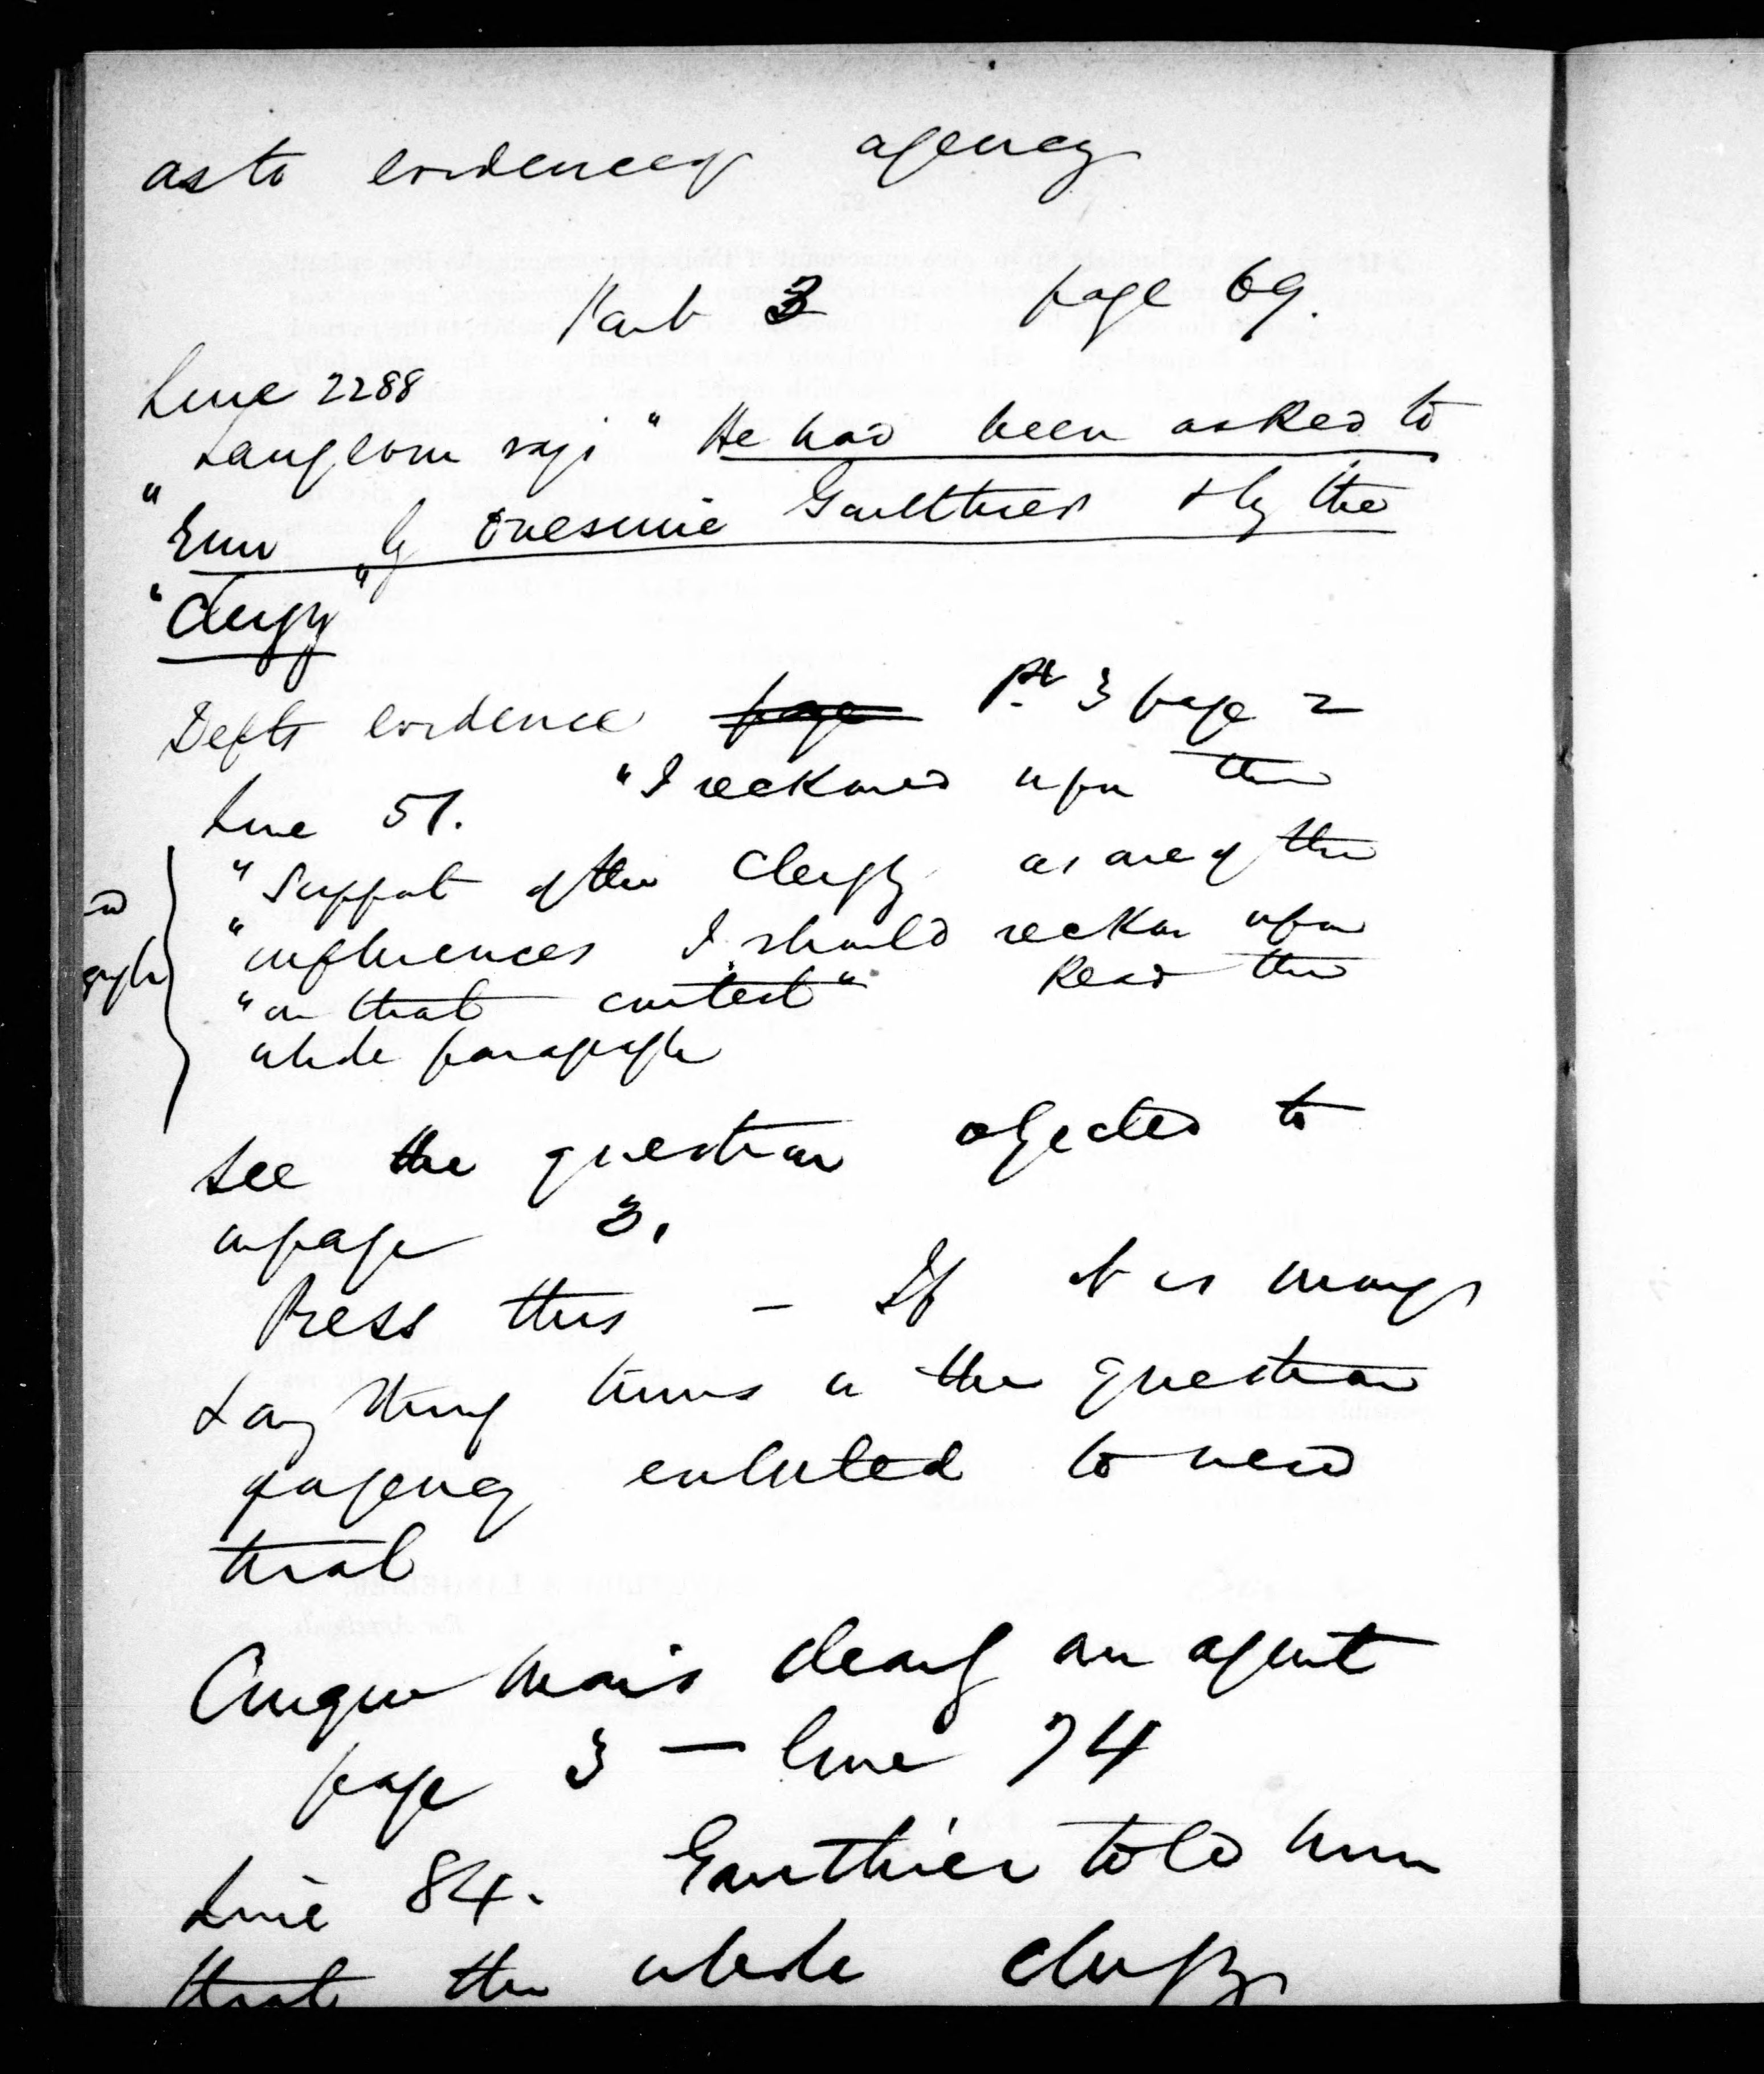 as to evidence of agency
Part 3 page 69.
Line 2288
Langevin says "He had been asked to
"run by Onesime Gaulthier & by the
"Clergy"
Defts evidence page Pt 3 page 2
Line 51. "I reckoned upon the
"Support of the Clergy as one of the
"influences I should reckon upon
"in that contest" Read the
whole paragraph
See the question objected to
on page 3.
Press this – If it is wrong
& any thing turns on the question
of agency entitled to new
trial
Cinqmars clearly an agent
page 3 — line 74
Line 84. Gauthier told him
that the whole clergy